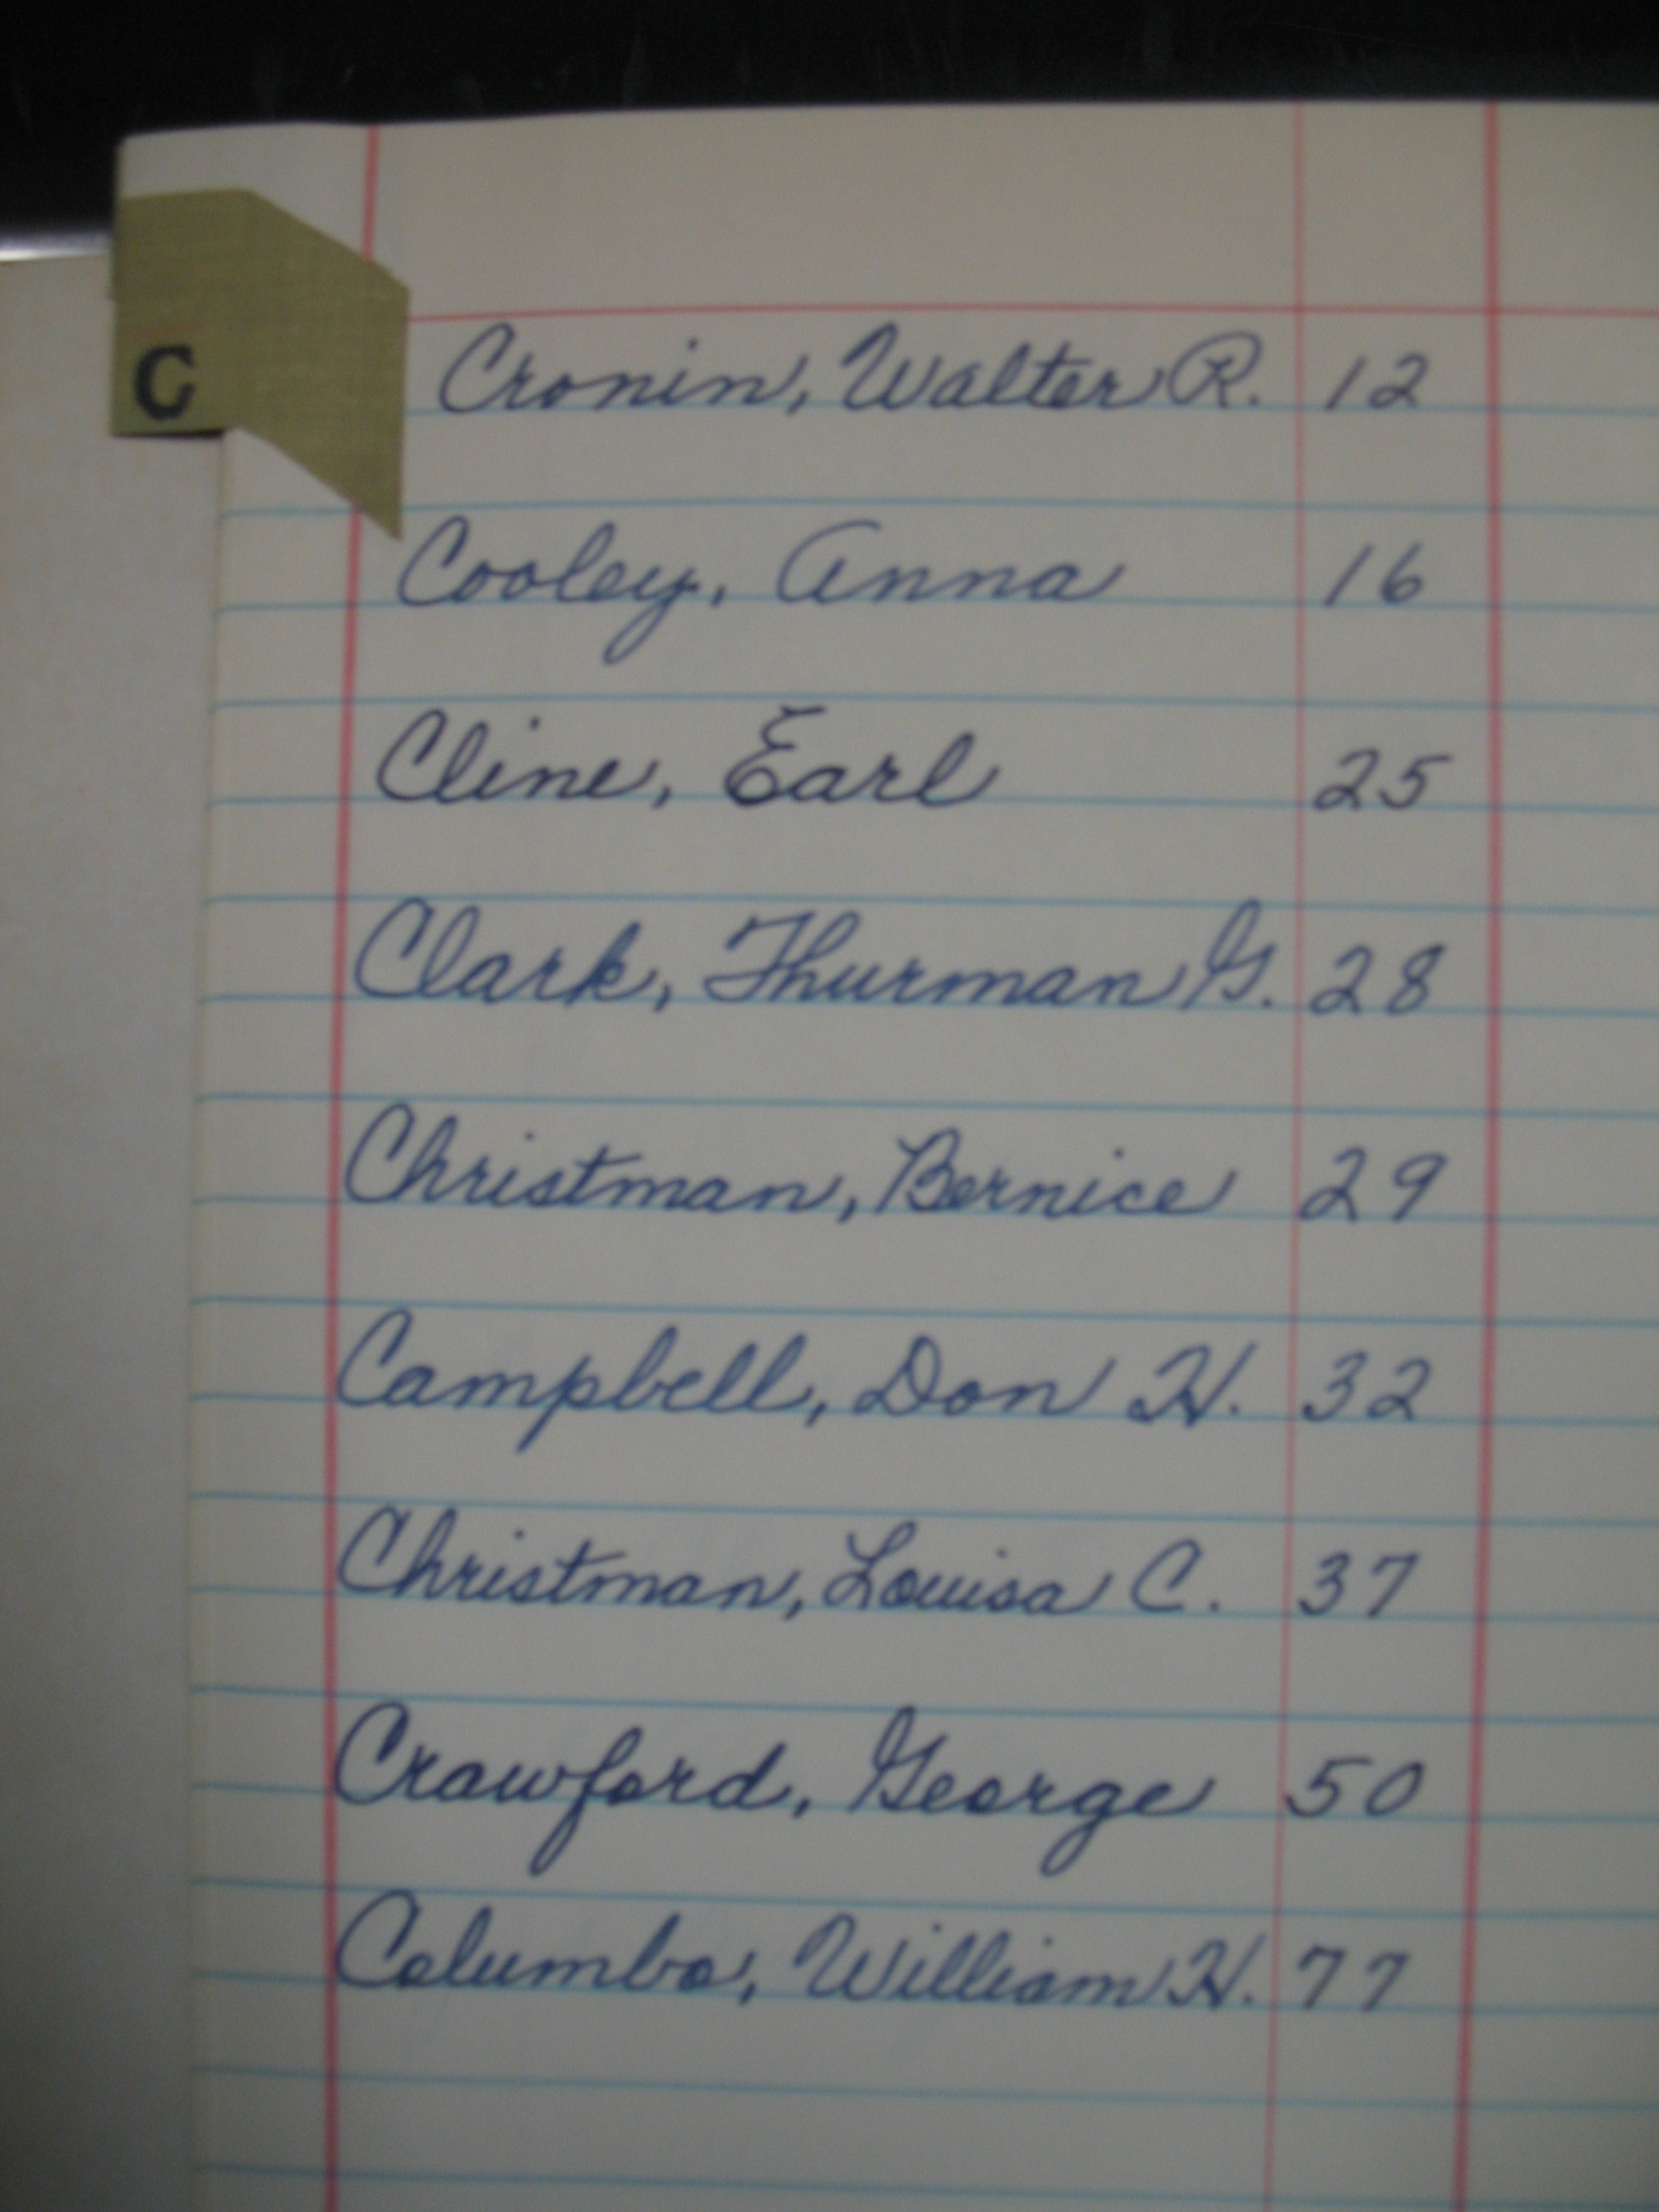 C
Cronin, Walter R. 12
Cooley, Anna 16
Cline, Earl 25
Clark, Thurman G. 28
Christman, Bernice 29
Campbell, Don H. 32
Christman, Louisa C. 37
Crawford, George 50
Columbo, William H. 77